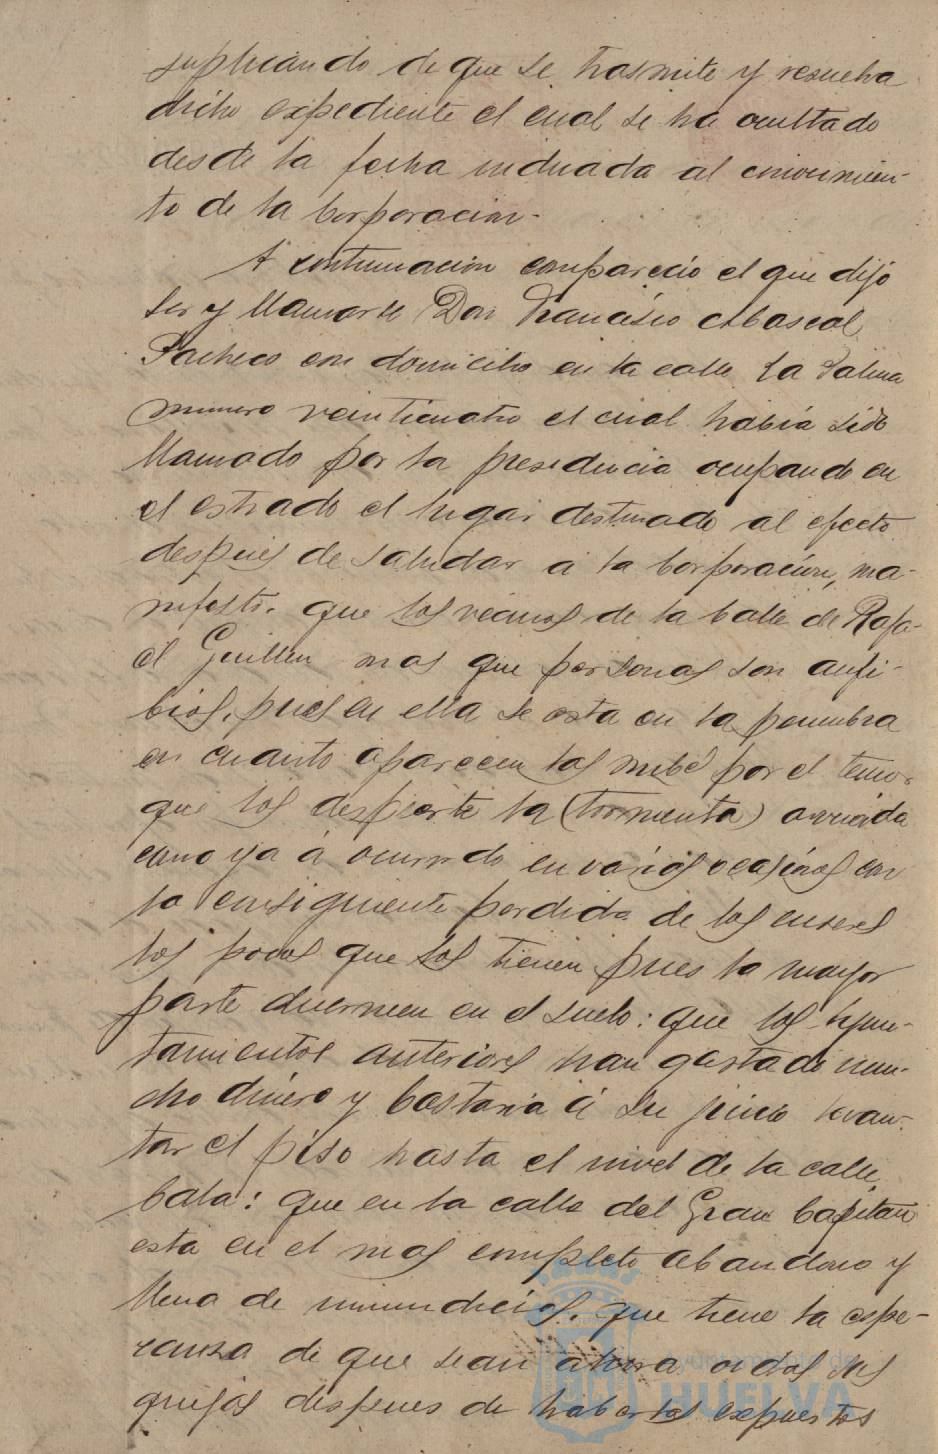 suplicando de que se trasmite y resuelva
dicho expediente el cual se ha ocultado
desde la fecha indicada al conocimien-
to de la Corporacion-
A continuacion comparecio el que dijo
ser y llamarse Don Francisco Abascal
Pacheco con domicilio en la calle La Palma
numero veinticuatro el cual habia sido
llamado por la presidencia ocupando en
el estrado el lugar destinado al efecto
despues de saludar a la Corporación, ma-
nifestó. que los vecinos de la Calle de Rafa-
el Guillen mas que personas son anfi-
bios, pues en ella se esta en la penumbra
en cuanto aparecen las nube por el temor
que los despierte la (tormenta) arriada
como ya á ocurrido en varias ocasiones con
la consiguiente perdida de los enseres
los pocos que los tienen pues la mayor
parte duermen en el suelo: que los Ayun-
tamientos anteriores han gastado mu-
cho dinero y bastaria á su juicio levan-
tar el piso hasta el nivel de la calle
Cala: que en la calle del Gran Capitan
esta en el mas completo abandono y
llena de inmundicias, que tiene la espe-
ranza de que sean ahora oidas sus
quejas despues de haberlas expuestos
Ayuntamiento de
HUELVA